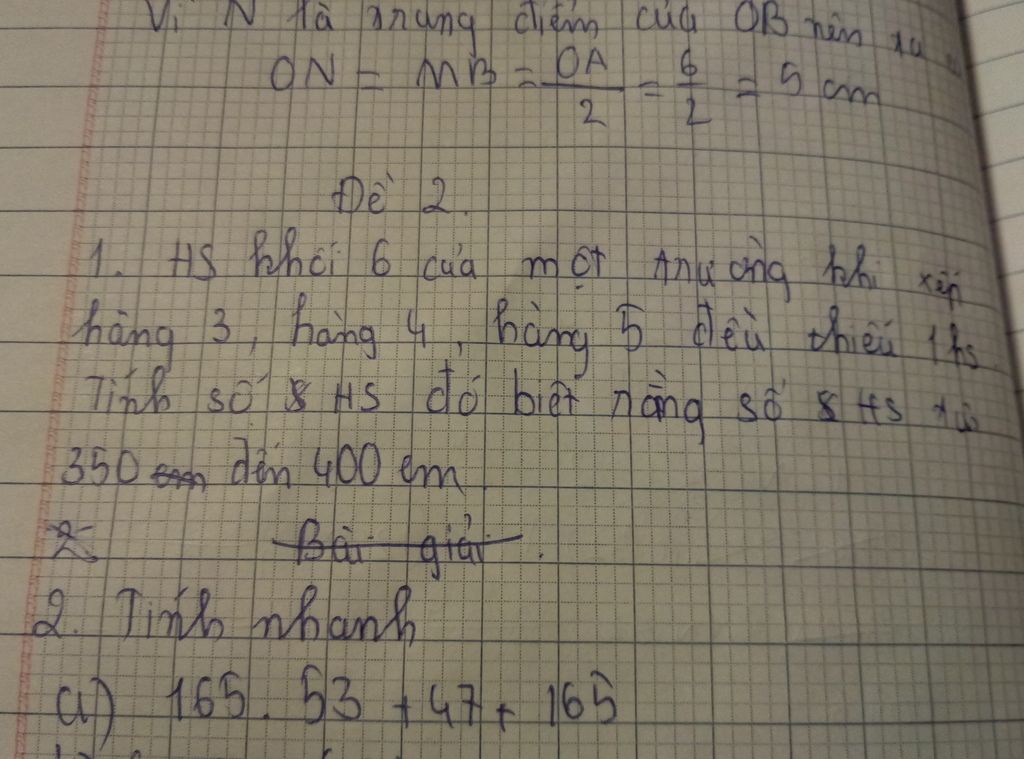 Vì N là trung điểm của OB nên ta
ON = MB = OA/2 = 6/2 = 5 cm
Đề 2.
1. HS khối 6 của một trường khi xếp
hàng 3, hàng 4, hàng 5 đều thiếu 1hs.
Tính số HS đó biết rằng số HS từ
350 đến 400 em
Bài giải.
2. Tính nhanh
a) 165 . 53 + 47 + 165